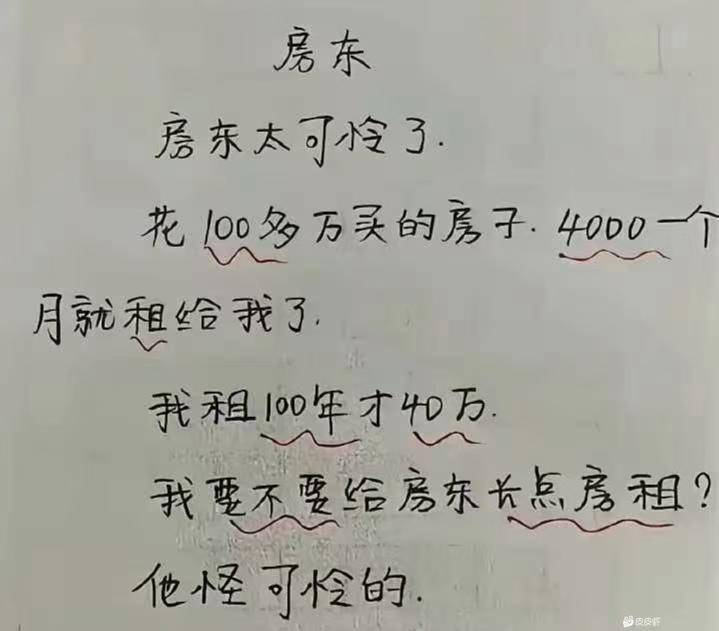 房东
房东太可怜了.
花100多万买的房子.4000一个
月就租给我了.
我租100年才40万.
我要不要给房东长点房租?
他怪可怜的.
皮皮虾